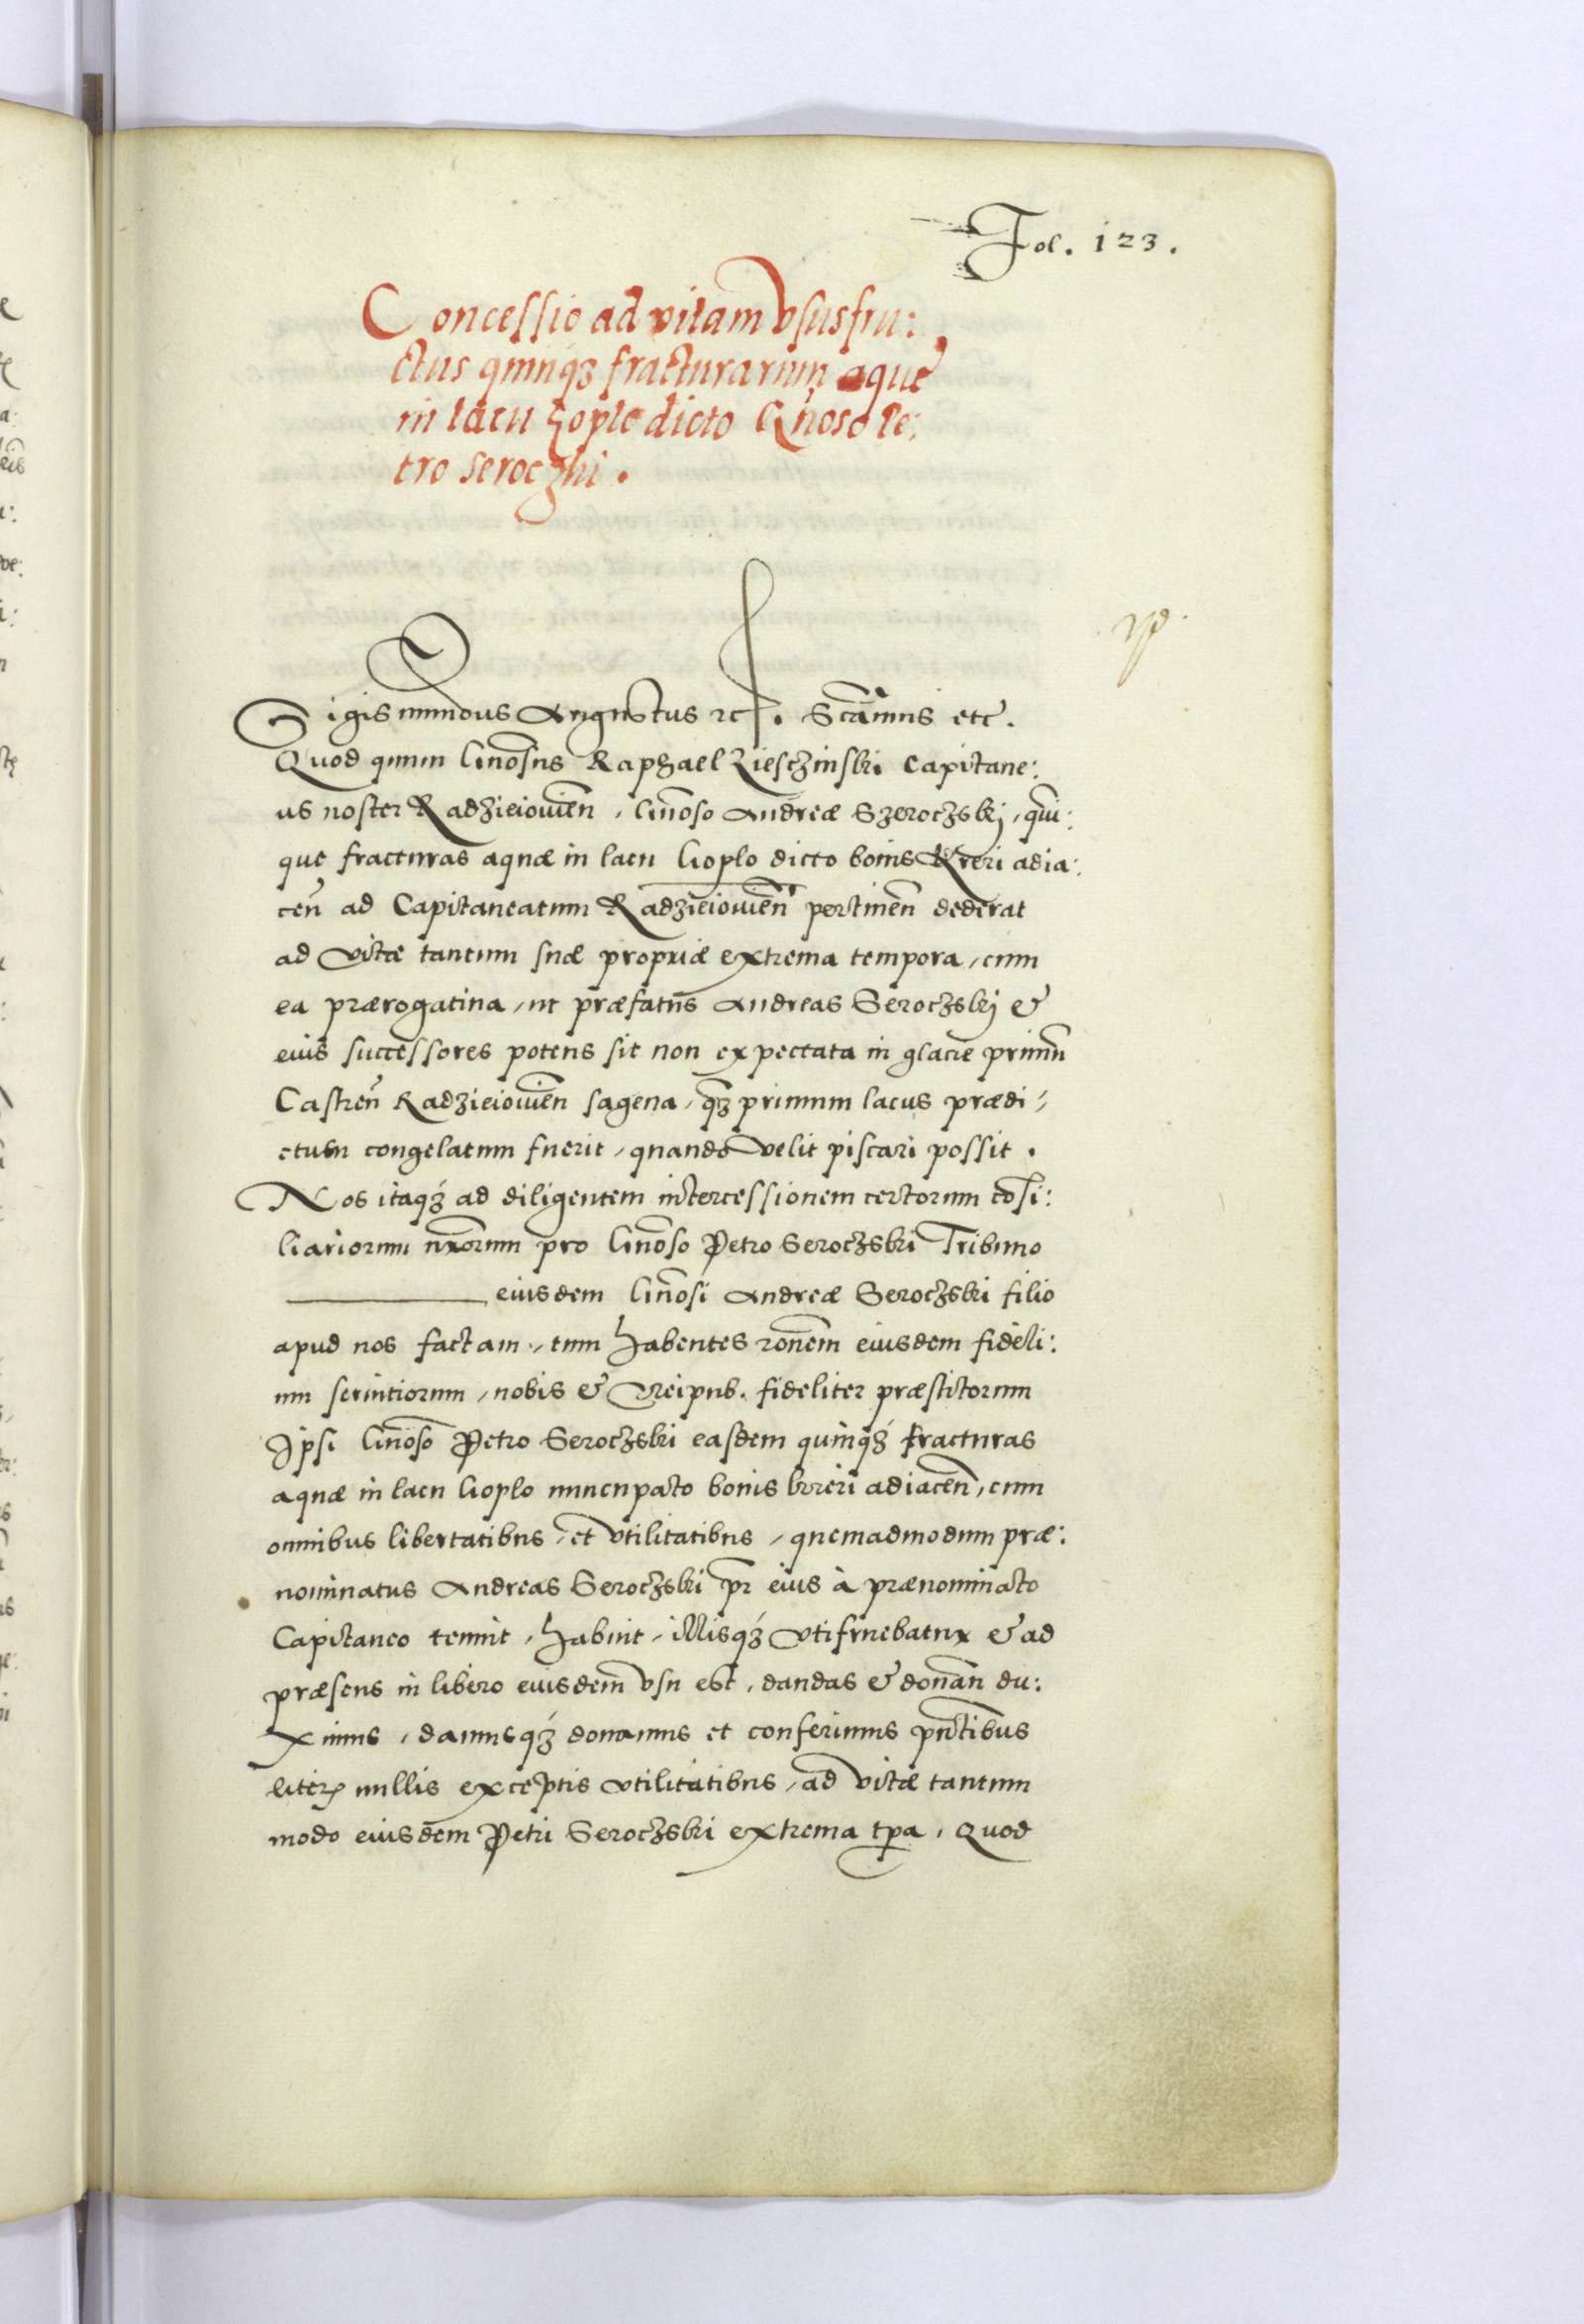 Fol. 123.
Concessio ad vitam vsusfru:
ctus quinqȝ fracturarum aque
in lacu Goplo dicto Gn̄oso Pe:
tro Seroczki.
Sigismundus Augustus ꝛc. Scām̄us etc̄.
Quod quum Gn̄osus Raphael Lieschinski Capitane:
us noster Radzieiowien̄, Gn̄oso Andreæ Szeroczskj, quī:
que fracturas aquæ in lacu Goplo dicto bonis Kreri adia:
cen̄ ad Capitaneatum Radzieiowien̄ pertinen̄ dederat
ad vitæ tantum suæ propriæ extrema tempora, cum
ea prærogatiua, ut præfatus Andreas Seroczskj &
eius successores potens sit non expectata in glacie primū
Castren̄ Radzieiowien̄ sagena, qȝ primum lacus prædi:
ctum congelatum fuerit, quando velit piscari possit.
Nos itaqȝ ad diligentem intercessionem certorum cōsi:
liariorum nr̄orum pro Gn̄oso Petro Seroczski Tribuno
eiusdem Gn̄osi Andreæ Seroczski filio
apud nos factam, tum habentes rōnem eiusdem fideli:
um seruitiorum, nobis & Reipub. fideliter præstitorum
Ipsi Gn̄oso Petro Seroczski easdem quinqȝ fracturas
aquæ in lacu Goplo nuncupato bonis kreri adiacen̄, cum
omnibus libertatibus, et vtilitatibus, quemadmodum præ:
nominatus Andreas Seroczski pr̄ eius à prænominato
Capitaneo tenuit, habuit, illisqȝ vtifruebatur & ad
præsens in libero eiusdem vsu est, dandas & donan̄ du:
ximus, damusqȝ donamus et conferimus pn̄tibus
literis nullis exceptis vtilitatibus, ad vitæ tantum
modo eiusdem Petri Seroczski extrema tp̄a, Quod